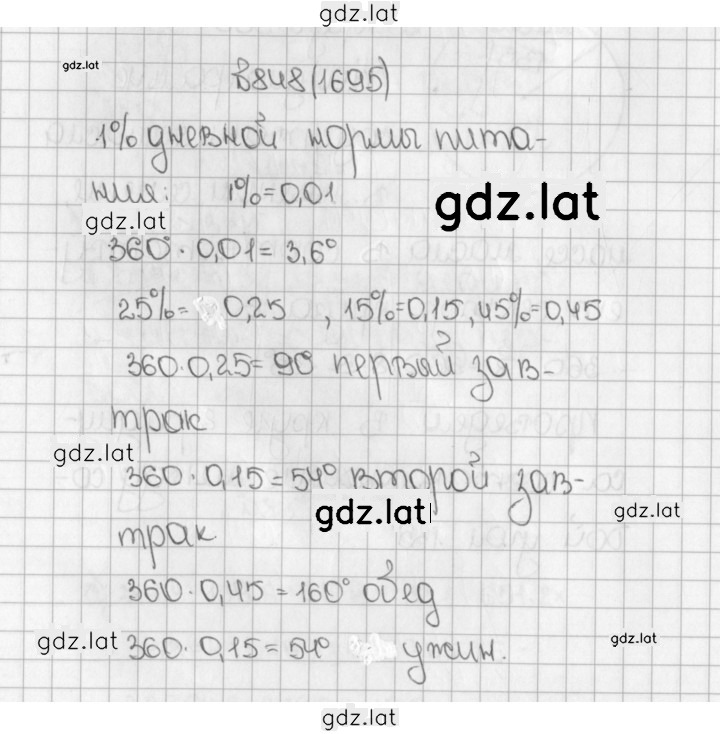 gdz.lat
gdz.lat
В848(1695)
1% дневной нормы пита-
ния: 1%=0,01
gdz.lat
gdz.lat
360° · 0,01 = 3,6°
25% = 0,25 , 15%=0,15, 45%=0,45
360·0,25=90° первый зав-
трак
gdz.lat
360·0,15=54° второй зав-
gdz.lat
gdz.lat
трак
360·0,45=160° обед
gdz.lat
360·0,15=54° ужин.
gdz.lat
gdz.lat